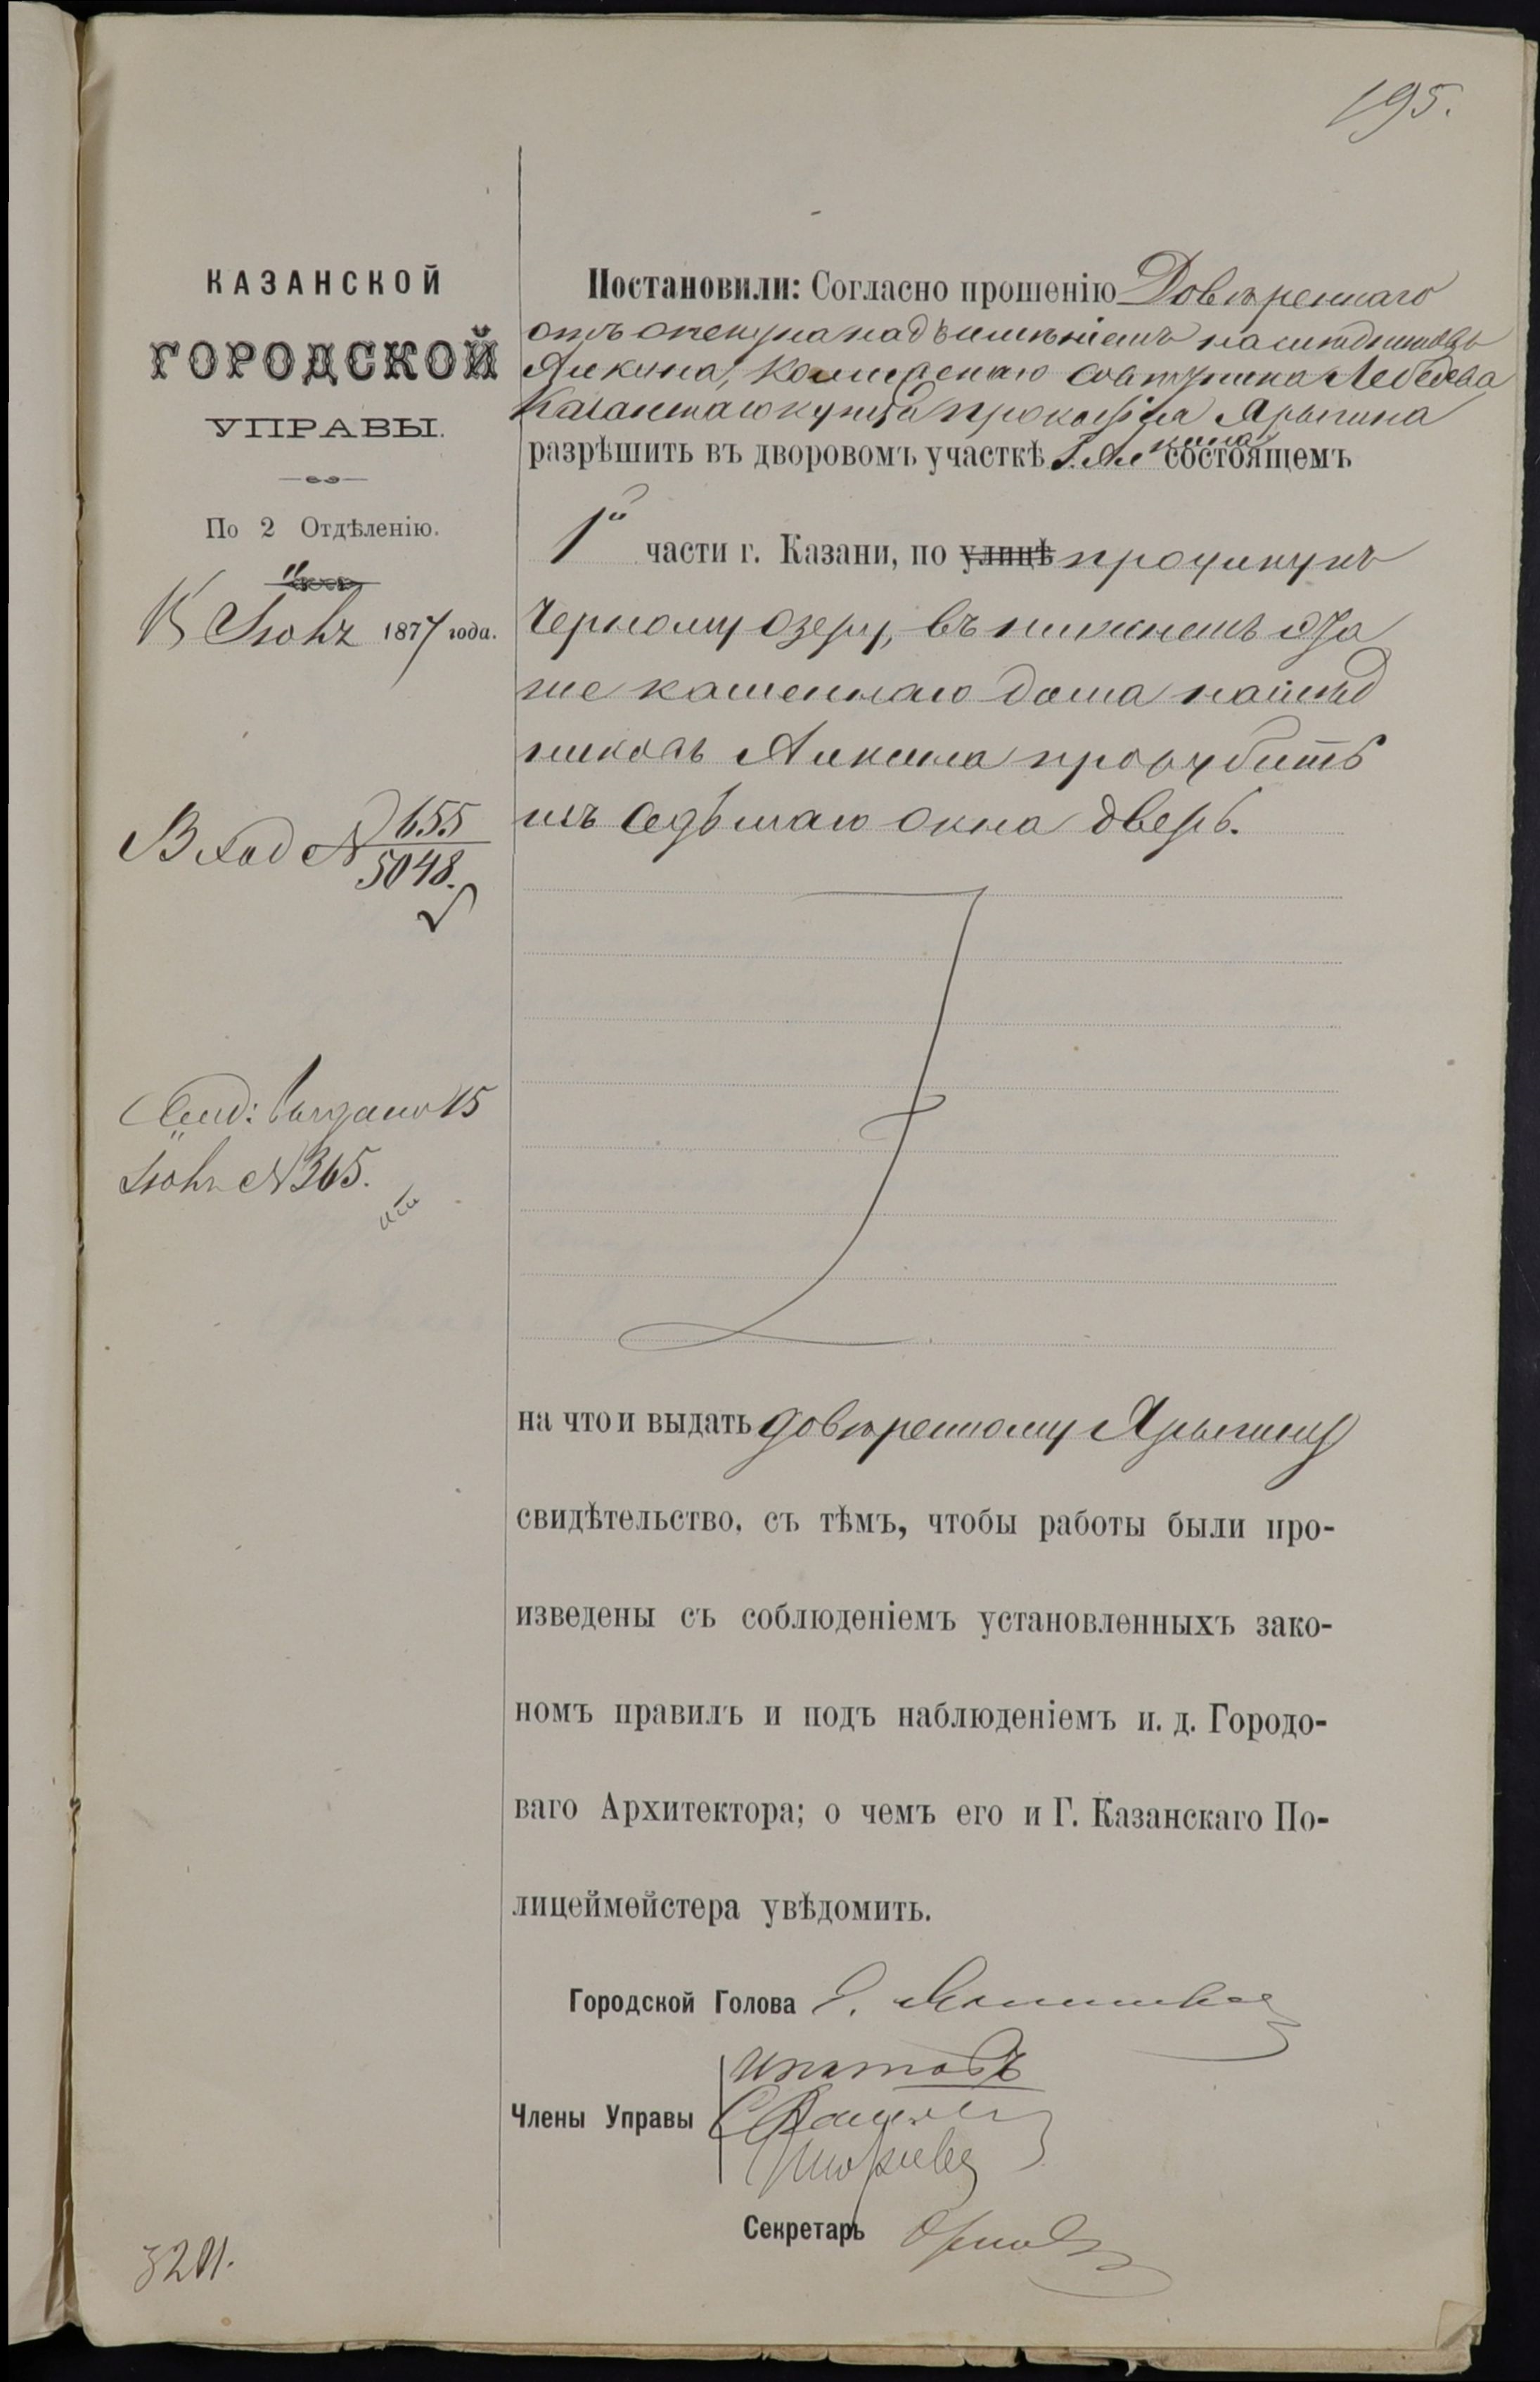 195.
КАЗАНСКОЙ
ГОРОДСКОЙ
УПРАВЫ.
По 2 Отдѣленію.
15 Іюня 1877 года.
Вход № 655
5048.
15
Іюня № 365.
Постановили: Согласно прошенію Довѣреннаго
отъ опекуна надъ имѣніемъ наслѣдниковъ
Алкина, Коллежскаго Совѣтника Лебедева
Казанскаго купца Прокофія Ярыгина
разрѣшить въ дворовомъ участкѣ Г. Алкина состоящемъ
1й части г. Казани, по улицѣ проулку къ
Черному озеру, въ нижнемъ эта
же каменнаго дома наслѣд
никовъ Алкина прорубить
изъ окна дверь.
на что и выдать довѣренному Ярыгину
свидѣтельство, съ тѣмъ, чтобы работы были про-
изведены съ соблюденіемъ установленныхъ зако-
номъ правилъ и подъ наблюденіемъ и. д. Городо-
ваго Архитектора; о чемъ его и Г. Казанскаго По-
лицеймейстера увѣдомить.
Городской Голова
Члены Управы
Секретарь
3201.